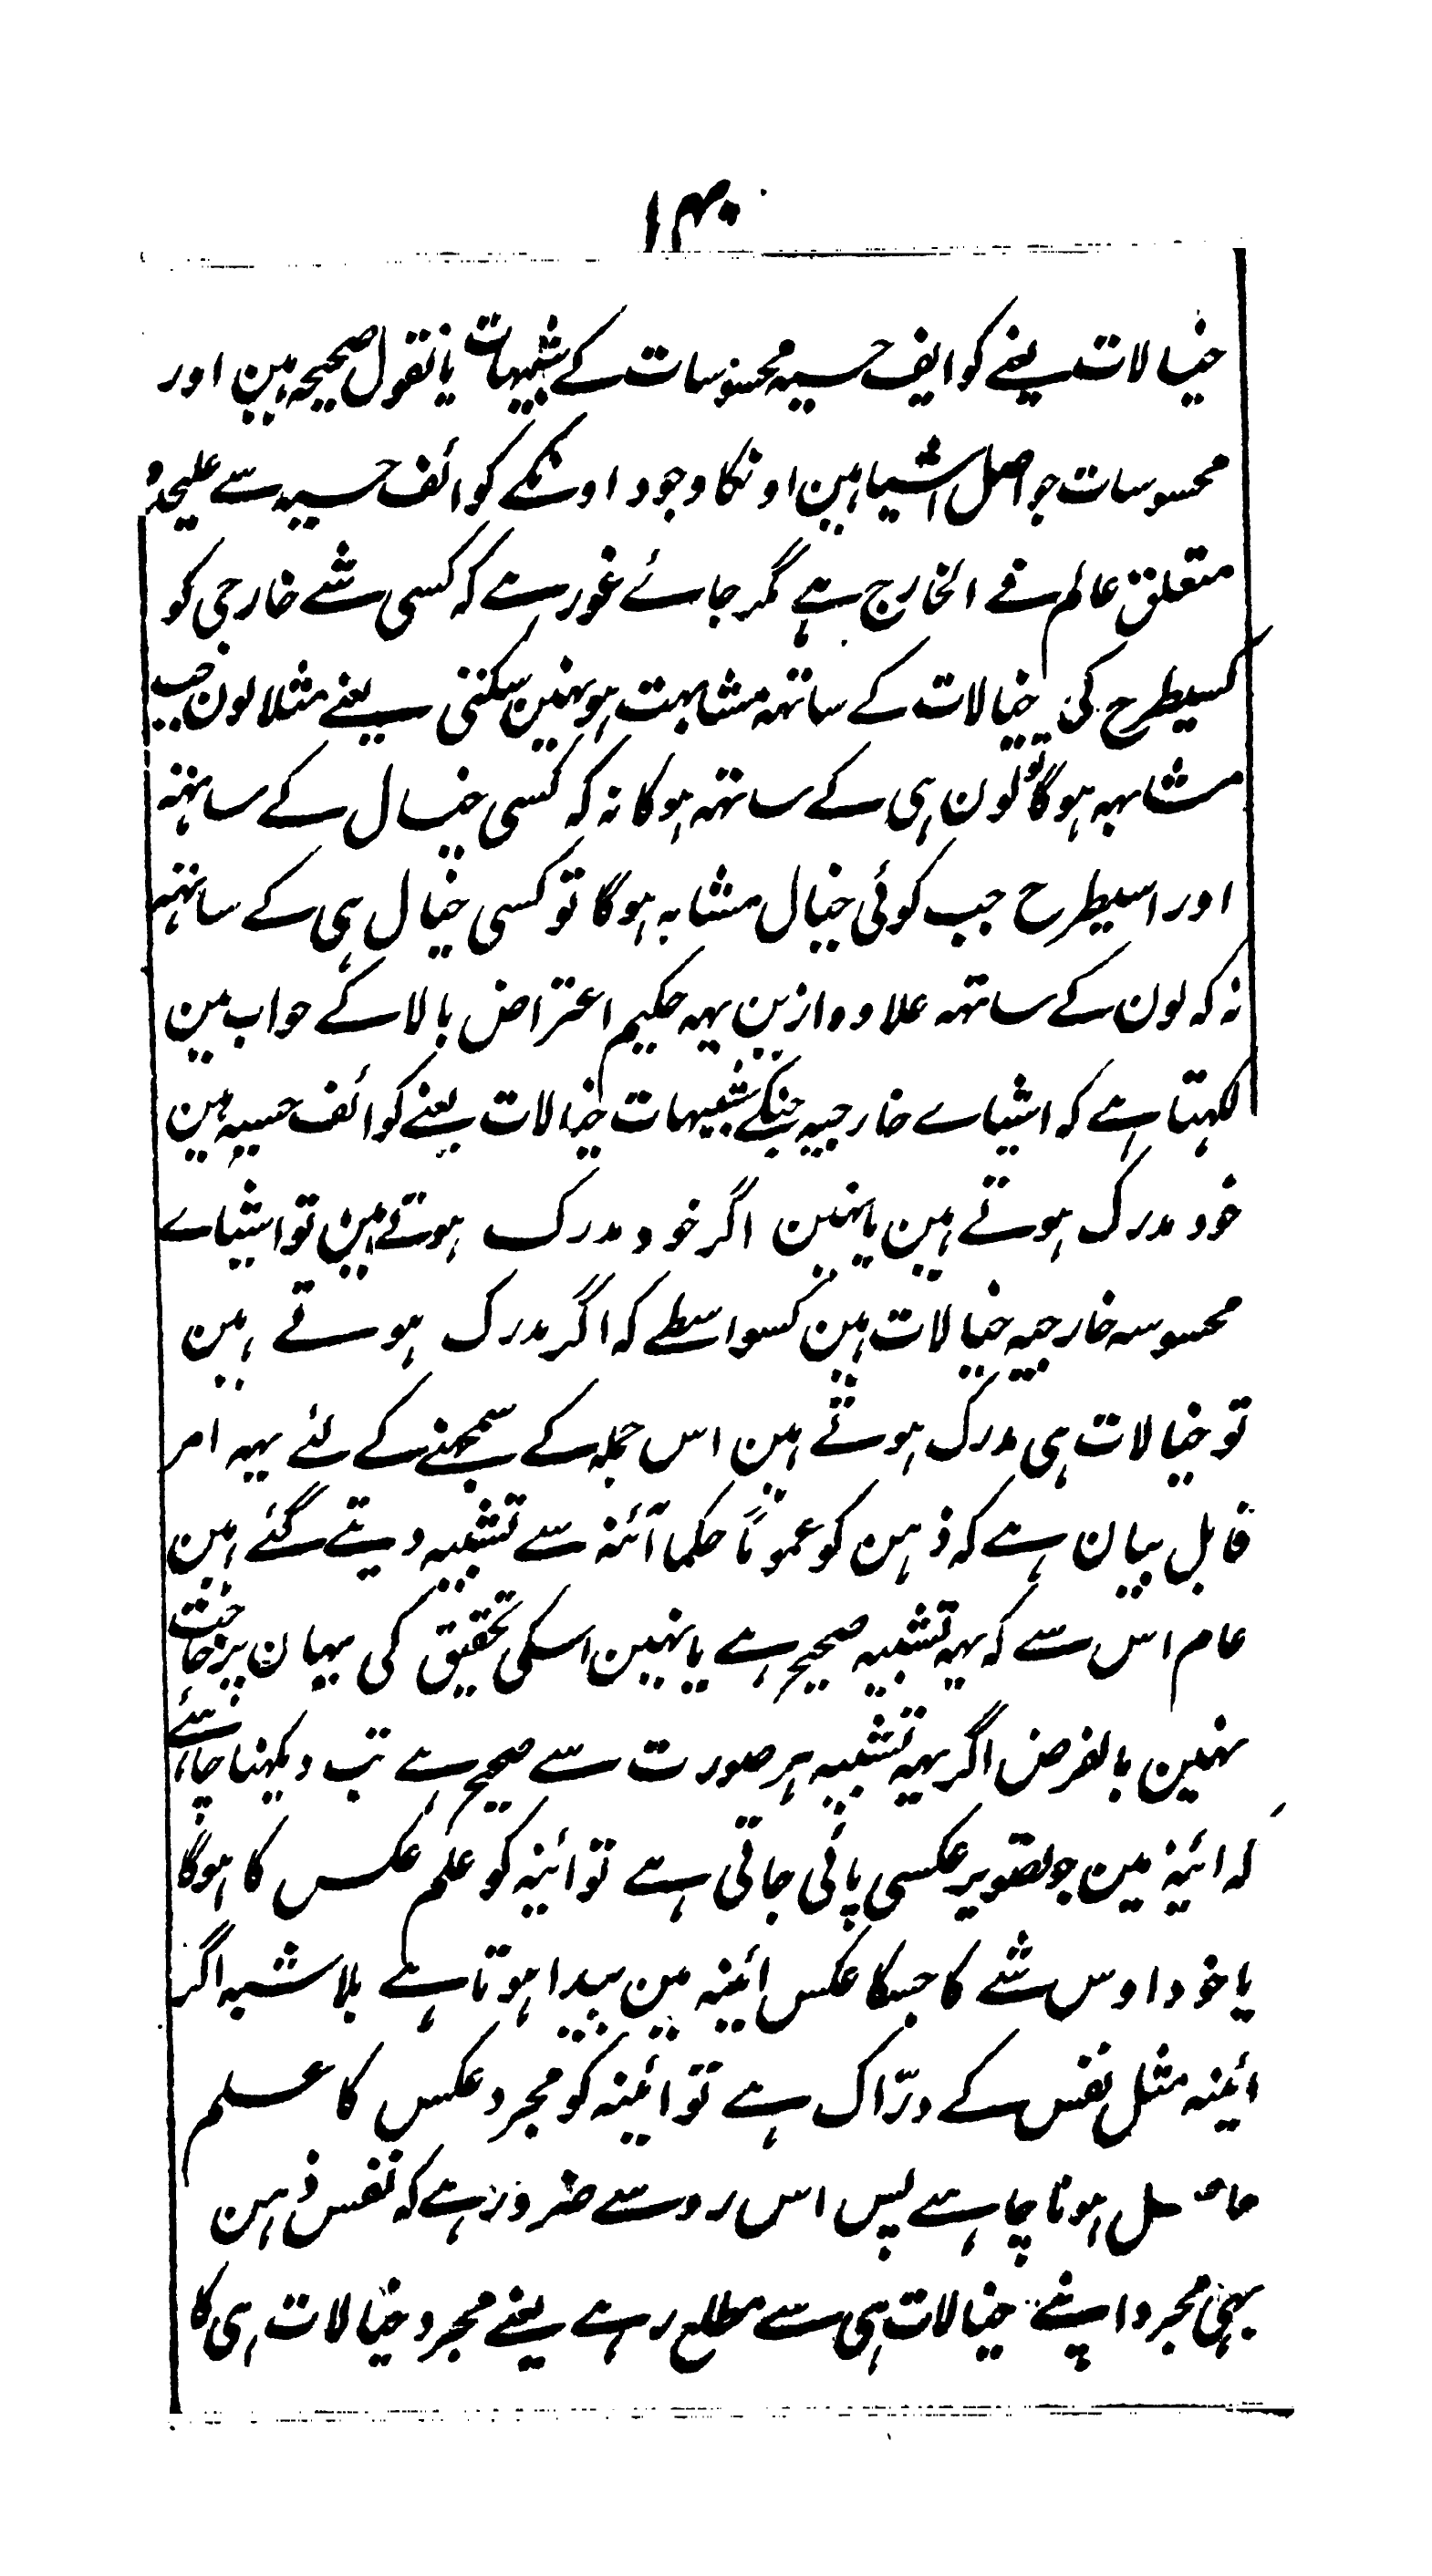 ۱۴۰
خیالات یعنے کوایف حسیہ محسوسات کے شبیہات یا نقول صحیحہ ہین اور
محسوسات جو اصل اشیا ہین اونکا وجود اونکے کوائف حسیہ سے علیحدہ
متعلق عالم فے الخارج ہے مگر جائے غور ہے کہ کسی شے خارجی کو
کسیطرح کی خیالات کے ساتھہ مشابہت ہو نہین سکتی یعنے مثلا لون جب
مشابہہ ہوگا تو لون ہی کے ساتھہ ہوگا نہ کہ کسی خیال کے ساتھہ
اور اسیطرح جب کوئی خیال مشابہ ہوگا تو کسی خیال ہی کے ساتھہ
نہ کہ لون کے ساتھہ علاوہ ازین یہہ حکیم اعتراض بالا کے جواب مین
لکھتا ہے کہ اشیاے خارجیہ جنکے شبیہات خیالات یعنے کوائف حسیہ ہین
خود مدرک ہوتے ہین یا نہین اگر خود مدرک ہوتے ہین تو اشیاے
محسوسہ خارجیہ خیالات ہین کسواسطے کہ اگر مدرک ہوتے ہین
تو خیالات ہی مدرک ہوتے ہین اس جملہ کے سمجھنے کے لئے یہہ امر
قابل بیان ہے کہ ذہن کو عموماً حکما آئنہ سے تشبیہ دیتے گئے ہین
عام اس سے کہ یہہ تشبیہ صحیح ہے یا نہین اسکی تحقیق کی یہان پر حاجت
نہین بالفرض اگر یہہ تشبیہ ہر صورت سے صحیح ہے تب دیکھنا چاہئے
کہ ائینہ مین جو تصویر عکسی پائی جاتی ہے تو ائینہ کو علم عکس کا ہوگا
یا خود اوس شے کا جسکا عکس ائینہ مین پیدا ہوتا ہے بلا شبہ اگر
ائینہ مثل نفس کے درّاک ہے تو ائینہ کو مجرد عکس کا علم
حاصل ہونا چاہے پس اس رو سے ضرور ہے کہ نفس ذہن
بھی مجرد اپنے خیالات ہی سے مطلع رہے یعنے مجرد خیالات ہی کا